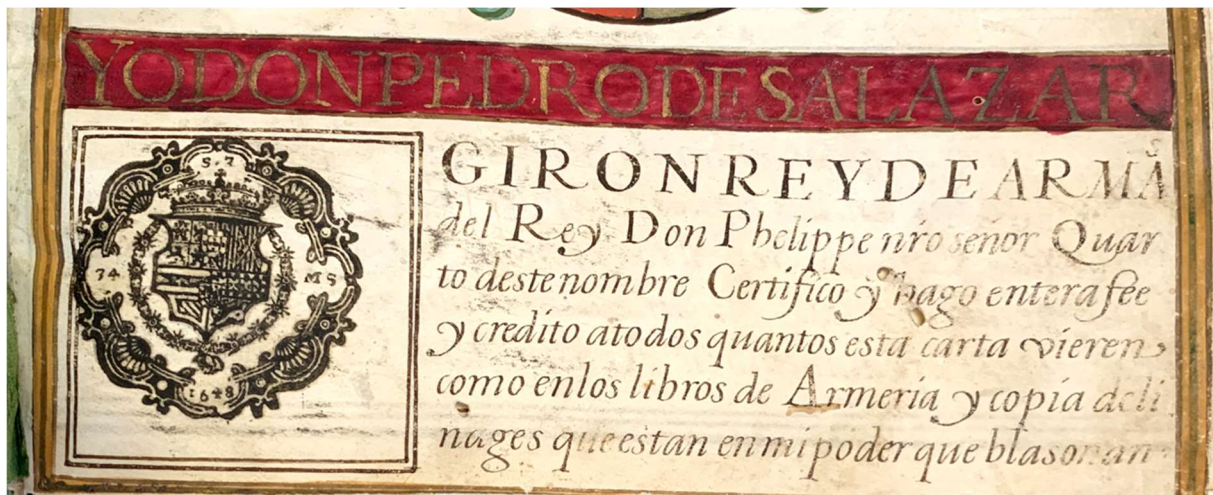 YO DON PEDRO DE SALAZAR
S. 7
34 MS
1648
GIRON REY DE ARMAS
del Rey Don Phelippe nro señor Quar
to deste nombre Certifico y hago entera fee
y credito atodos quantos esta carta vieren
como enlos libros de Armeria y copia de li
nages que estan en mi poder que blasonan